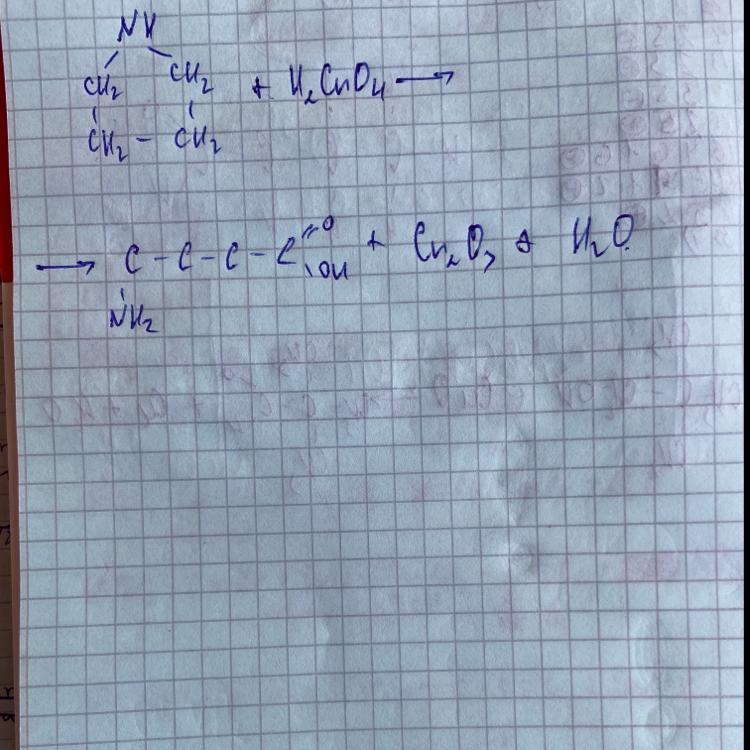 NH
CH₂ CH₂ + H₂CrO₄ ⟶
CH₂ - CH₂
⟶ C - C - C - C =O + Cr₂O₃ + H₂O
\OH
NH₂